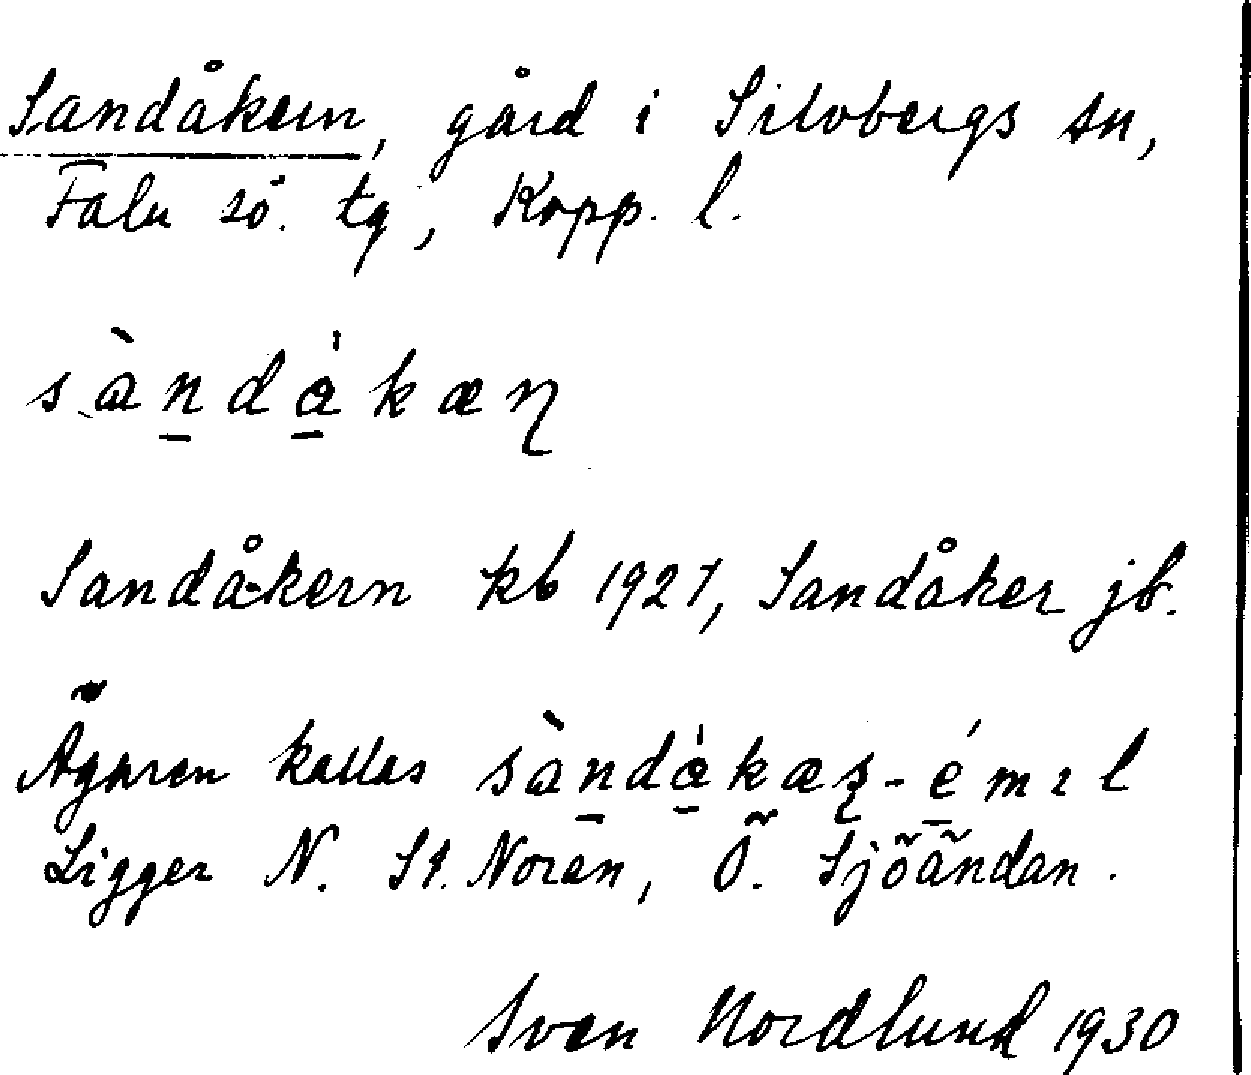 Sandåkern, gård i Silvbergs sn,
Falu sö. tg, Kopp. l.
sàn̠då̠̍kæɳ
Sandåkern kb 1927, Sandåker jb.
Ägaren kallas sàn̠då̠̍kæʂ-é̠mɪl
Ligger N. St. Noren, Ö. Sjöändan.
Sven Nordlund 1930